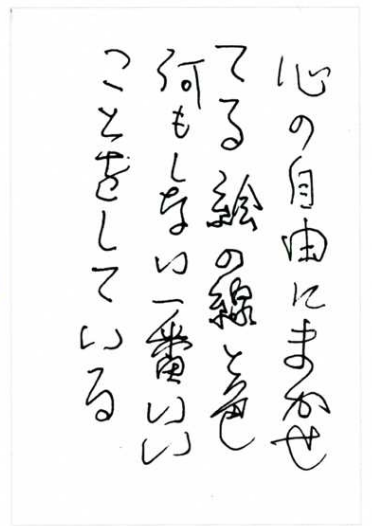 心の自由にまかせ
てる絵の線と色
何もしない一番いい
ことをしている